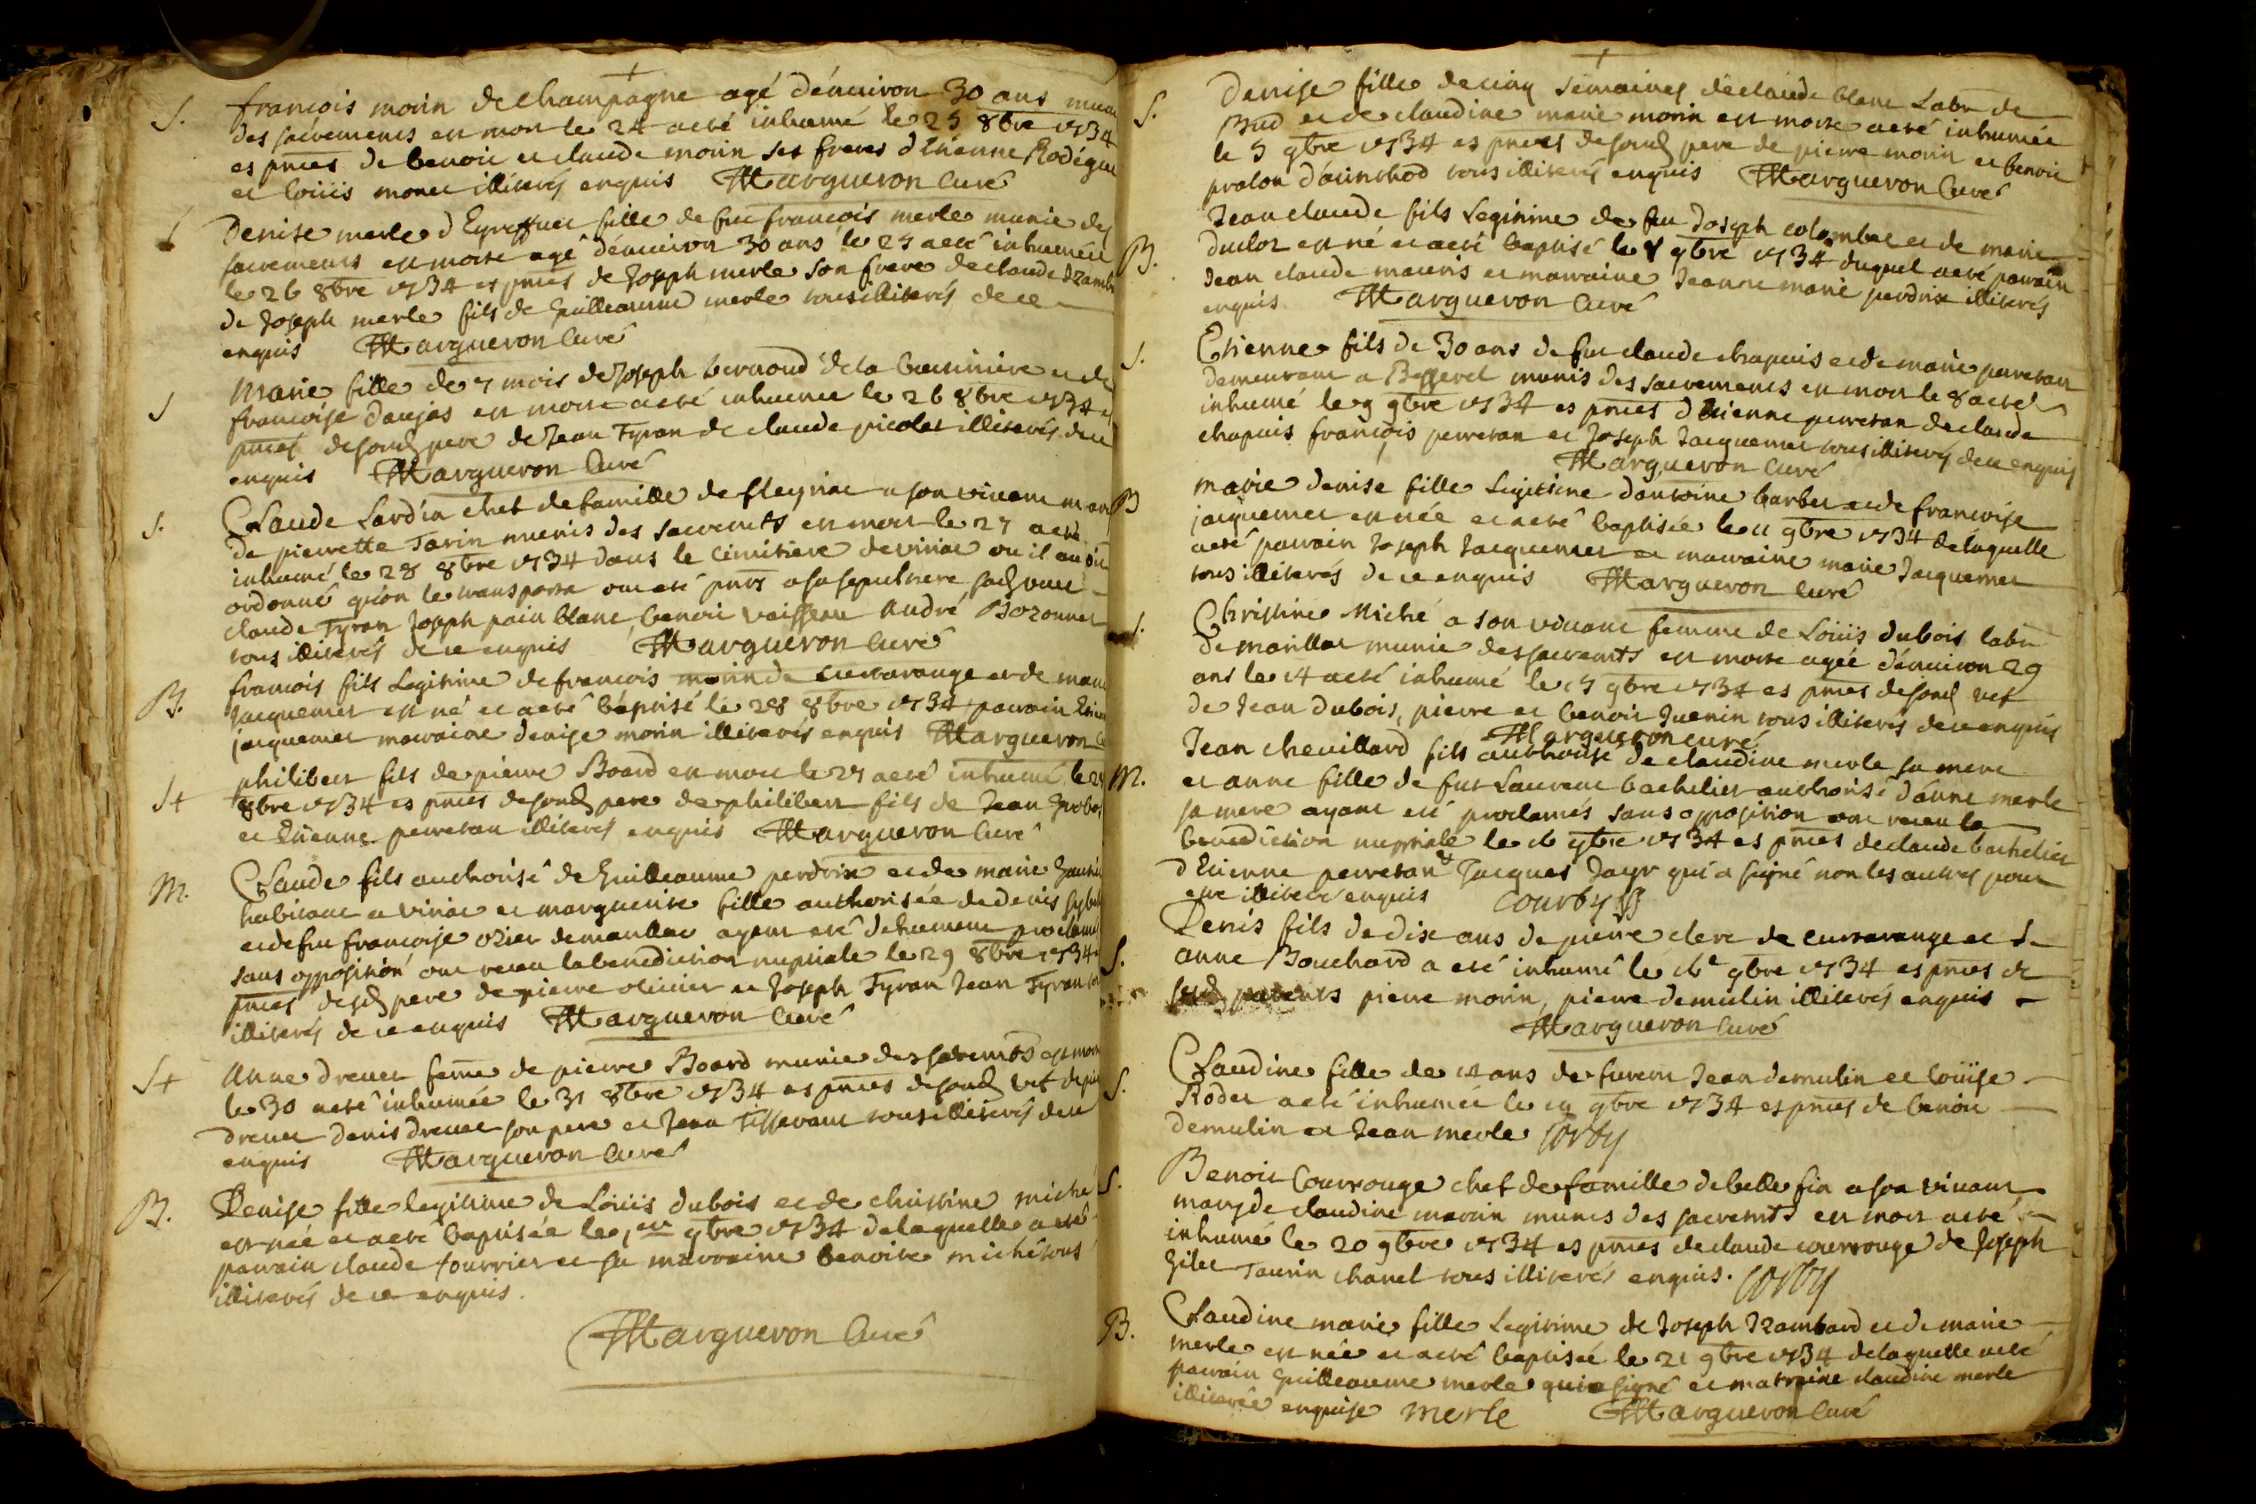 S. francois morin de Champagne agé d'énuiron 30 ans muni
des sacrements est mort le 24 aeté inhumé le 25 8bre 1734
es pntes de benoit et claude morin ses freres d'Etienne Rodégue
et loüis monet illiterés enquis Margueron Curé
Denise merle d'Eyreffuet fille de feu francois merle munie des
sacrements est morte agé denuiron 30 ans le 25 aeté inhumée
le 26 8bre 1734 es pntes de Joseph merle son frere de claude Izamb
de Joseph merle fils de guilleaume merle tous illiterés de ce
enquis Margueron Curé
S marie fille de 7 mois de Joseph bernaoud de la et de
francoise daujas est morte aeté inhumée le 26 8bre 1734 es
pntes desond pere de Jean Tyran de claude picolet illiterés de ce
enquis Margueron Curé
S. Claude Lardin chef de famille de fleyriat a son viuant mary
de pierrette Tavin munis des sacremts est mort le 27 aeté
inhumé le 28 8bre 1734 dans le cimitiere deviriat ou il auoit
ordonné qu'on le transporta ont eté pnts a sa sepulture
claude Tyran Joseph pain blanc benoit vaisseau André Bozonnet
tous illiterés de ce enquis Margueron Curé
B. francois fils Legitime de francois morin de curtarange et de marie
Jacquemet est né et aeté baptisé le 28 8bre 1734 parrain Etien
jacquemet marraine denise morin illiterés enquis Margueron C
St philibert fils de pierre Board est mort le 27 aeté inhumé le 28
8bre 1734 es pntes desond pere de philibert fils de Jean
et Etienne perretan illiterés enquis Margueron Curé
M. Claude fils authorisé de Guilleaume perdrix et de marie
habitant a viriat et marguerite fille authorisée de denis
et de feu francoise ozier demarillat ayant eté duement proclamés
sans opposition ont receu la benediction nuptiale le 29 8bre 1734 es
pntes desd pere de pierre oliuier et Joseph Tyran Jean Tyran
illiterés de ce enquis Margueron Curé
St Anne dreuet feme de pierre Board munie des sacremts est morte
le 30 aeté inhumée le 31 8bre 1734 es pntes desond
dreuet denis dreuet son pere et Jean Tisserant tous illiterés de ce
enquis Margueron Curé
B. Denise fille legitime de Loüis dubois et de christine miché
est née et aeté baptisée le 1er 9bre 1734 de laquelle aeté
parrain claude fourrier et sa marraine benoite miché tous
illiterés de ce enquis.
Margueron Curé
S. Denise fille de cinq semaines de claude blanc Labr de
Bud et de claudine marie morin est morte aeté inhumée
le 5 9bre 1734 es pntes desond pere de pierre morin et benoit
prolon d'aúinthod tous illiterés enquis Margueron Curé
B. Jean claude fils Legitime de feu Joseph colombet et de marie
duclos est né et aeté baptisé le 8 9bre 1734 duquel aeté parrain
Jean claude mauris et marraine Jeanne marie perdrix illiterés
enquis Margueron Curé
S. Etienne fils de 30 ans de feu claude chapuis et de marie perretan
demeurant a Besserel munis des sacrements est mort le 8 aeté
inhumé le 9 9bre 1734 es pntes d'Etienne perretan de claude
chapuis françois perretan et Joseph Jacquemet tous illiterés de ce enquis
Margueron Curé
B marie denise fille Legitime dantoine barbet et de francoise
jacquemet est née et aeté baptisée le 11 9bre 1734 de laquelle
aeté parrain Joseph Jacquemet et marraine marie Jacquemet
tous illiterés de ce enquis Margueron Curé
S. Christine Miché a son viuant femme de Loüis dubois labr
de marillat munie des sacremts est morte agée d'énuiron 29
ans le 14 aeté inhumé le 15 9bre 1734 es pntes desond
de Jean dubois, pierre et benoit Juenin tous illiterés de ce enquis
Margueron curé
M. Jean cheuillard fils authorisé de claudine merle sa mere
et anne fille de feu Laurent bachelier authorisé d'anne merle
sa mere ayant eté proclamés sans opposition ont receu la
benediction nuptiale le 16 9bre 1734 es pntes de claude bachelier
d'Etienne perretan & Jacques Jayr qui a signé non les autres pour
etre illiteré enquis Courby
S. Denis fils de dix ans de pierre clerc de curtarange et d
anne Bouchard a eté inhumé le 16e 9bre 1734 es pntes de
parents pierre morin, pierre demulin illiterés enquis
Margueron Curé
S. Claudine fille de 14 ans de Jean demulin et loüise
Rodet aeté inhumée le 19 9bre 1734 es pntes de benoit
demulin et Jean merle Corby
S. Benoit Courrouge chef de famille de belle fin a son viuant
mary de claudine marin munis des sacremts est mort aeté
inhumé le 20 9bre 1734 es pntes de claude courrouge de Joseph
gilet Taurin chanel tous illiterés enquis. Corby
B. Claudine marie fille Legitime de Joseph Izambard et de marie
merle est née et aeté baptisée le 21 9bre 1734 de laquelle aeté
parrain Guilleaume merle qui a signé et matraine claudine merle
illiterée enquise merle Margueron Curé